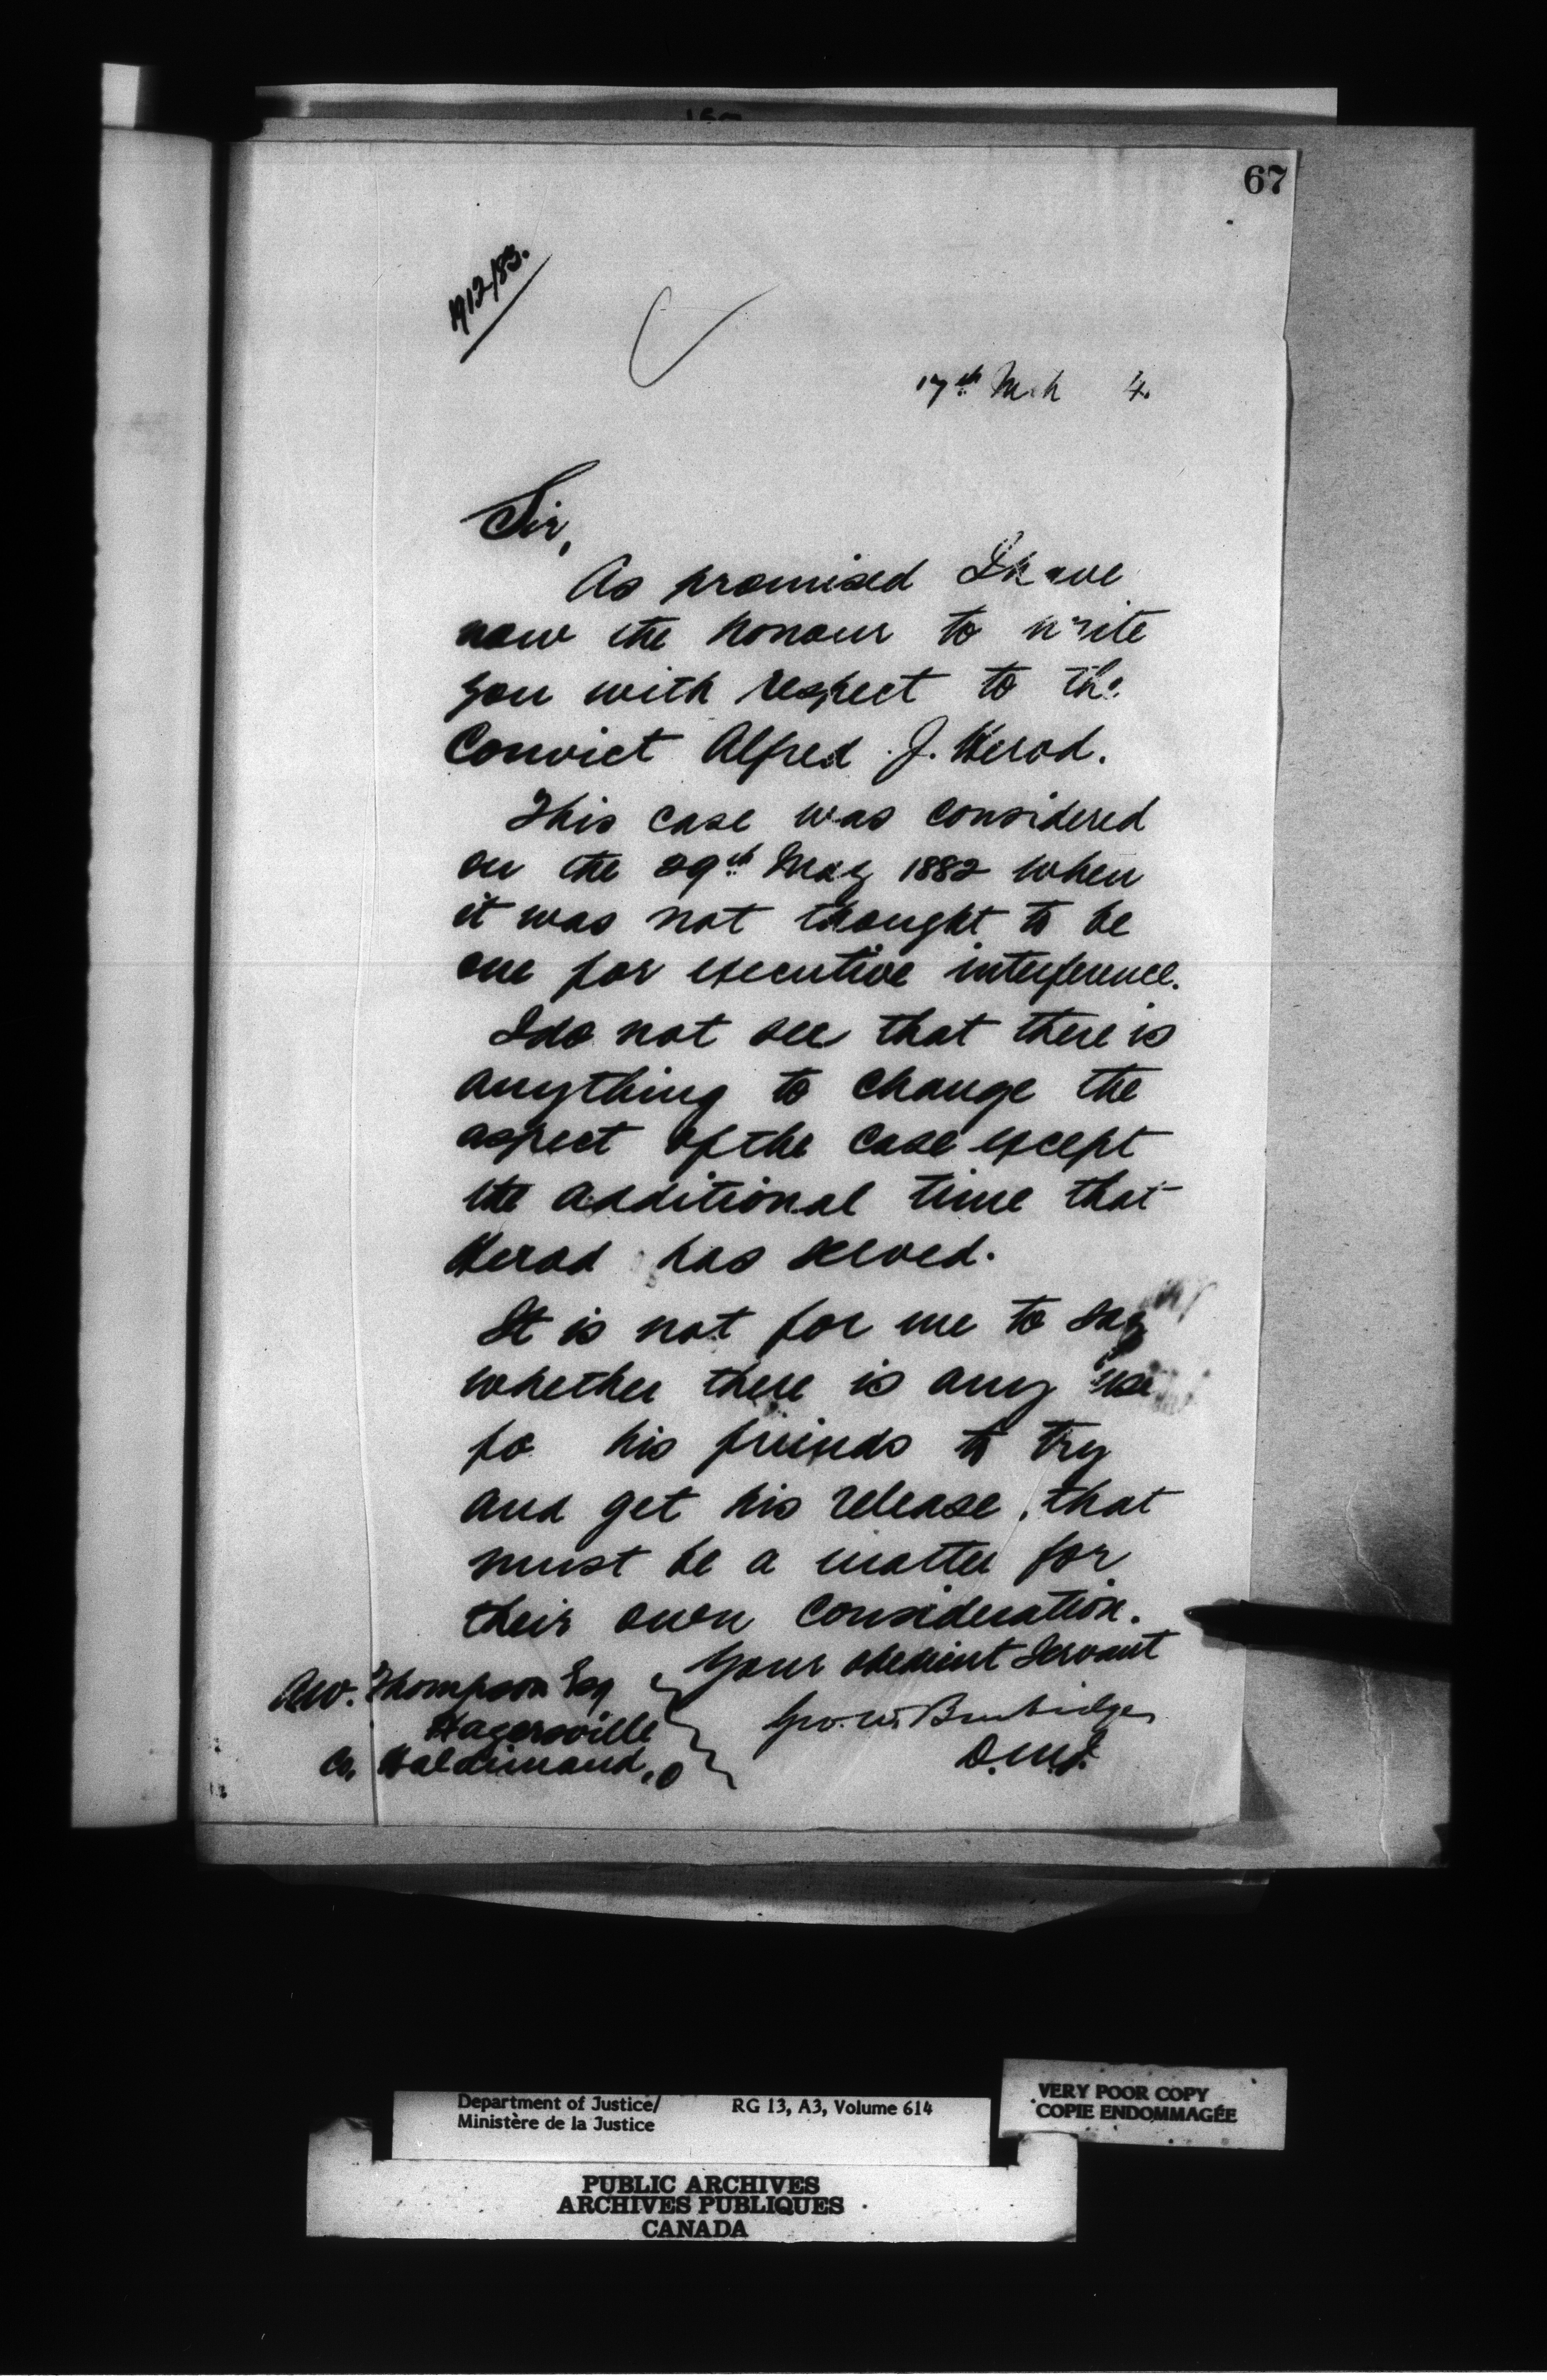 67
1912/83.
17th Mch 4.
Sir,
As promised I have
now the honour to write
you with respect to the
Convict Alfred J. Herod.
This case was considered
on the 29th May 1882 when
it was not thought to be
one for executive interference.
I do not see that there is
anything to change the
aspect of the case except
the additional time that
Herod has served.
It is not for me to say
whether there is any use
fo his friends to try
and get his release, that
must be a matter for
their own consideration.
Your obedient Servant
Geo. W. Burbidge
D.M.J.
A.W. Thompson Esq
Hagersville
Co. Haldimand, O
Department of Justice/
Ministère de la Justice
RG 13, A3, Volume 614
VERY POOR COPY
COPIE ENDOMMAGÉE
PUBLIC ARCHIVES
ARCHIVES PUBLIQUES
CANADA